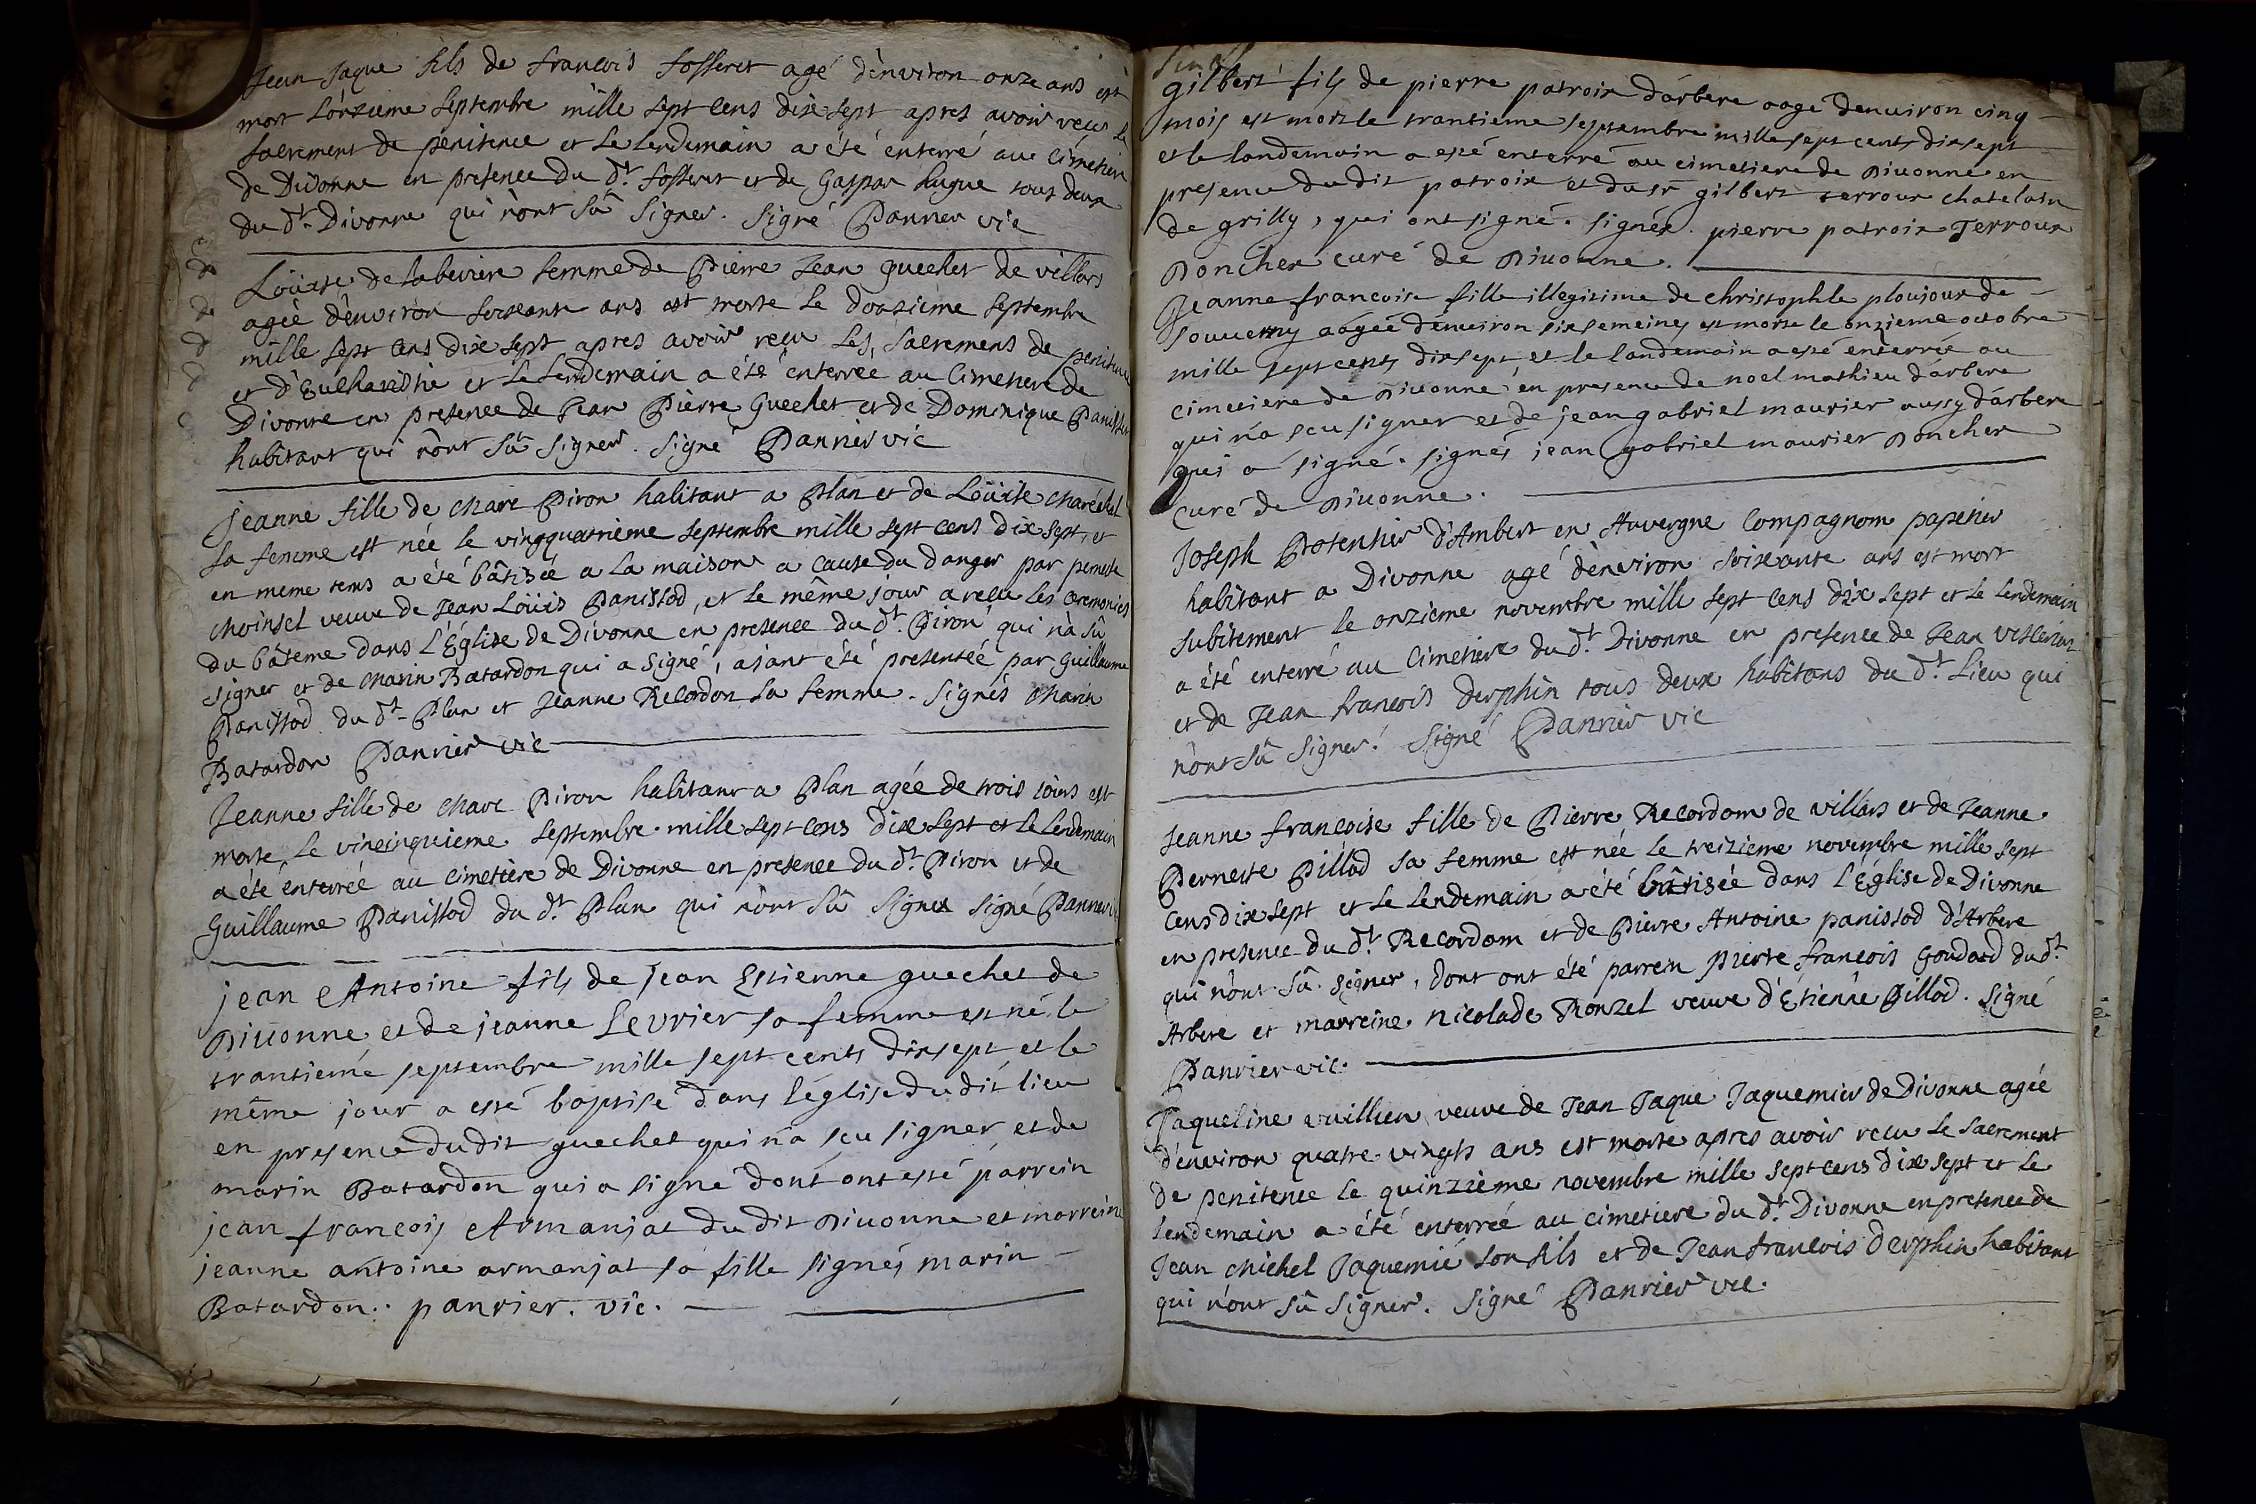 Jean Jaque fils de francois fosseret agé d'environ onze ans est
mort l'onzieme septembre mille sept cens dixsept apres avoir recu le
sacrement de penitence et le lendemain a été enterré au Cimetiere
de Divonne en presence du dt. fosseret et de Gaspar hugue tous deux
du dt. Divonne qui n'ont sû signer. Signé Panrier vic
Loüise de labeviere femme de Pierre Jean guechet de villars
agée d'environ soixante ans est morte le douzieme septembre
mille sept cens dixsept apres avoir recu les sacremens de penitence
et d'Eucharistie et le lendemain a été enterrée au Cimetiere de
Divonne en presence de Jean Pierre Guechet et de Dominique Panissod
habitant qui n'ont sû signer. Signé Panrier vic
Jeanne fille de Marc Piron habitant a Plan et de Loüise Maréchal
sa femme est née le vingquatrieme septembre mille sept cens dix sept, et
en meme tems a été bâtisée a la maison a cause du danger par pernette
Moinsel veuve de Jean Loüis Panissod, et le même jour a recu les ceremonies
du bâteme dans l'Église de Divonne en presence du dt. Piron qui n'a sû
signer et de Marin Batardon qui a signé, aiant été presentée par Guillaume
Panissod du dt. Plan et Jeanne Recordon sa femme. Signés Marin
Batardon Panrier vic
Jeanne fille de Marc Piron habitant a Plan agée de trois jours est
morte le vincinquieme septembre mille sept cens dixsept et le lendemain
a été enterrée au cimetiere de Divonne en presence du dt. Piron et de
Guillaume Panissod du dt. Plan qui n'ont sû signer Signé Panrier vic
jean Antoine fils de jean Estienne guechet de
Diuonne et de jeanne Levrier sa femme est né le
trantieme septembre mille sept cents dixsept et le
même jour a esté baptisé dans l'église du dit lieu
en presence du dit guechet qui n'a sçu signer et de
marin Batardon qui a signé dont ont esté parrein
jean françois Armanjat du dit Diuonne et marreine
jeanne antoine armanjat sa fille signés marin
Batardon. panrier. vic.
gilbert fils de pierre patroix d'arbere aagé denuiron cinq
mois est mort le trantieme septembre mille sept cents dixsept
et le landemain a esté enterré au cimetiere de Diuonne en
presence du dit patroix et du sr gilbert terroux chatelain
de grilly, qui ont signé. signés. pierre patroix Terroux
Poncher curé de Diuonne.
Jeanne francoise fille illegitime de christophle ploujoux de
sauuerny aagée d'enuiron six semeines est morte le onzieme octobre
mille sept cents dixsept et le landemain a esté enterrée au
cimetiere de Diuonne en presence de noel mathieu d'arbere
qui n'a sceu signer et de jean gabriel maurier aussy d'arbere
qui a signé. signés jean gabriel maurier Poncher
curé de Diuonne.
Joseph Potentier d'Ambert en Auvergne Compagnom papetier
habitant a Divonne agé d'environ soixante ans est mort
subitement le onzieme novembre mille sept cens dix sept et le lendemain
a été enterré au Cimetiere du dt. Divonne en presence de Jean
et de Jean francois derphin tous deux habitans du dt. Lieu qui
n'ont sû signer. Signé Panrier vic
Jeanne francoise fille de Pierre Recordom de villars et de Jeanne
Pernette Pillod sa femme est née le treizieme novembre mille sept
cens dixsept et le lendemain a été bâtisée dans l'Église de Divonne
en presence du dt. Recordom et de Pierre Antoine panissod d'Arbere
qui n'ont sû signer, dont ont été parrein pierre francois Goudard du dt.
Arbere et marreine nicolade Ronzel veuve d'Étienne Pillod. Signé
Panrier vic.
Jaqueline vuillien veuve de Jean Jaque Jaquemier de Divonne agée
d'environ quatre-vingts ans est morte apres avoir recu le sacrement
de penitence le quinzieme novembre mille sept cens dix sept et le
lendemain a été enterrée au cimetiere du dt. Divonne en presence de
Jean Michel Jaquemié son fils et de Jean francois derphin habitant
qui n'ont sû signer. Signé Panrier vic.